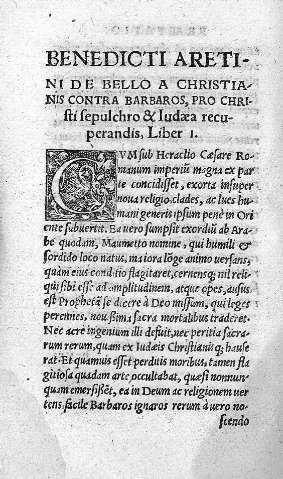 BENEDICTI ARETI-
NI DE BELLO A CHRISTIA-
NIS CONTRA BARBAROS, PRO CHRI-
sti sepulchro & Iudæa recu-
perandis, Liber 1.
CVM sub Heraclio Cæsare Ro-
manum imperiū magna ex par
te concidisset, exorta insuper
noua religio, clades, ac lues hu
mani generis ipsum penè in Ori
ente subuertit. Ea uero sumpsit exordiū ab Ara-
be quodam, Maumetto nomine, qui humili &
sordido loco natus, maiora lōge animo uersans,
quàm eius conditio flagitaret, cernensq; nil reli-
qui sibi esse ad amplitudinem, atque opes, ausus
est Prophetā se dicere à Deo missum, qui leges
perennes, nouissima sacra mortalibus traderet.
Nec acre ingenium illi defuit, nec peritia sacra-
rum rerum, quam ex Iudæis Christianisq; hause
rat. Et quamuis esset perditis moribus, tamen fla
gitiosa quadam arte occultabat, quæ si nonnun-
quam emersissēt, ea in Deum ac religionem uer
tens, facile Barbaros ignaros rerum à uero no-
scendo